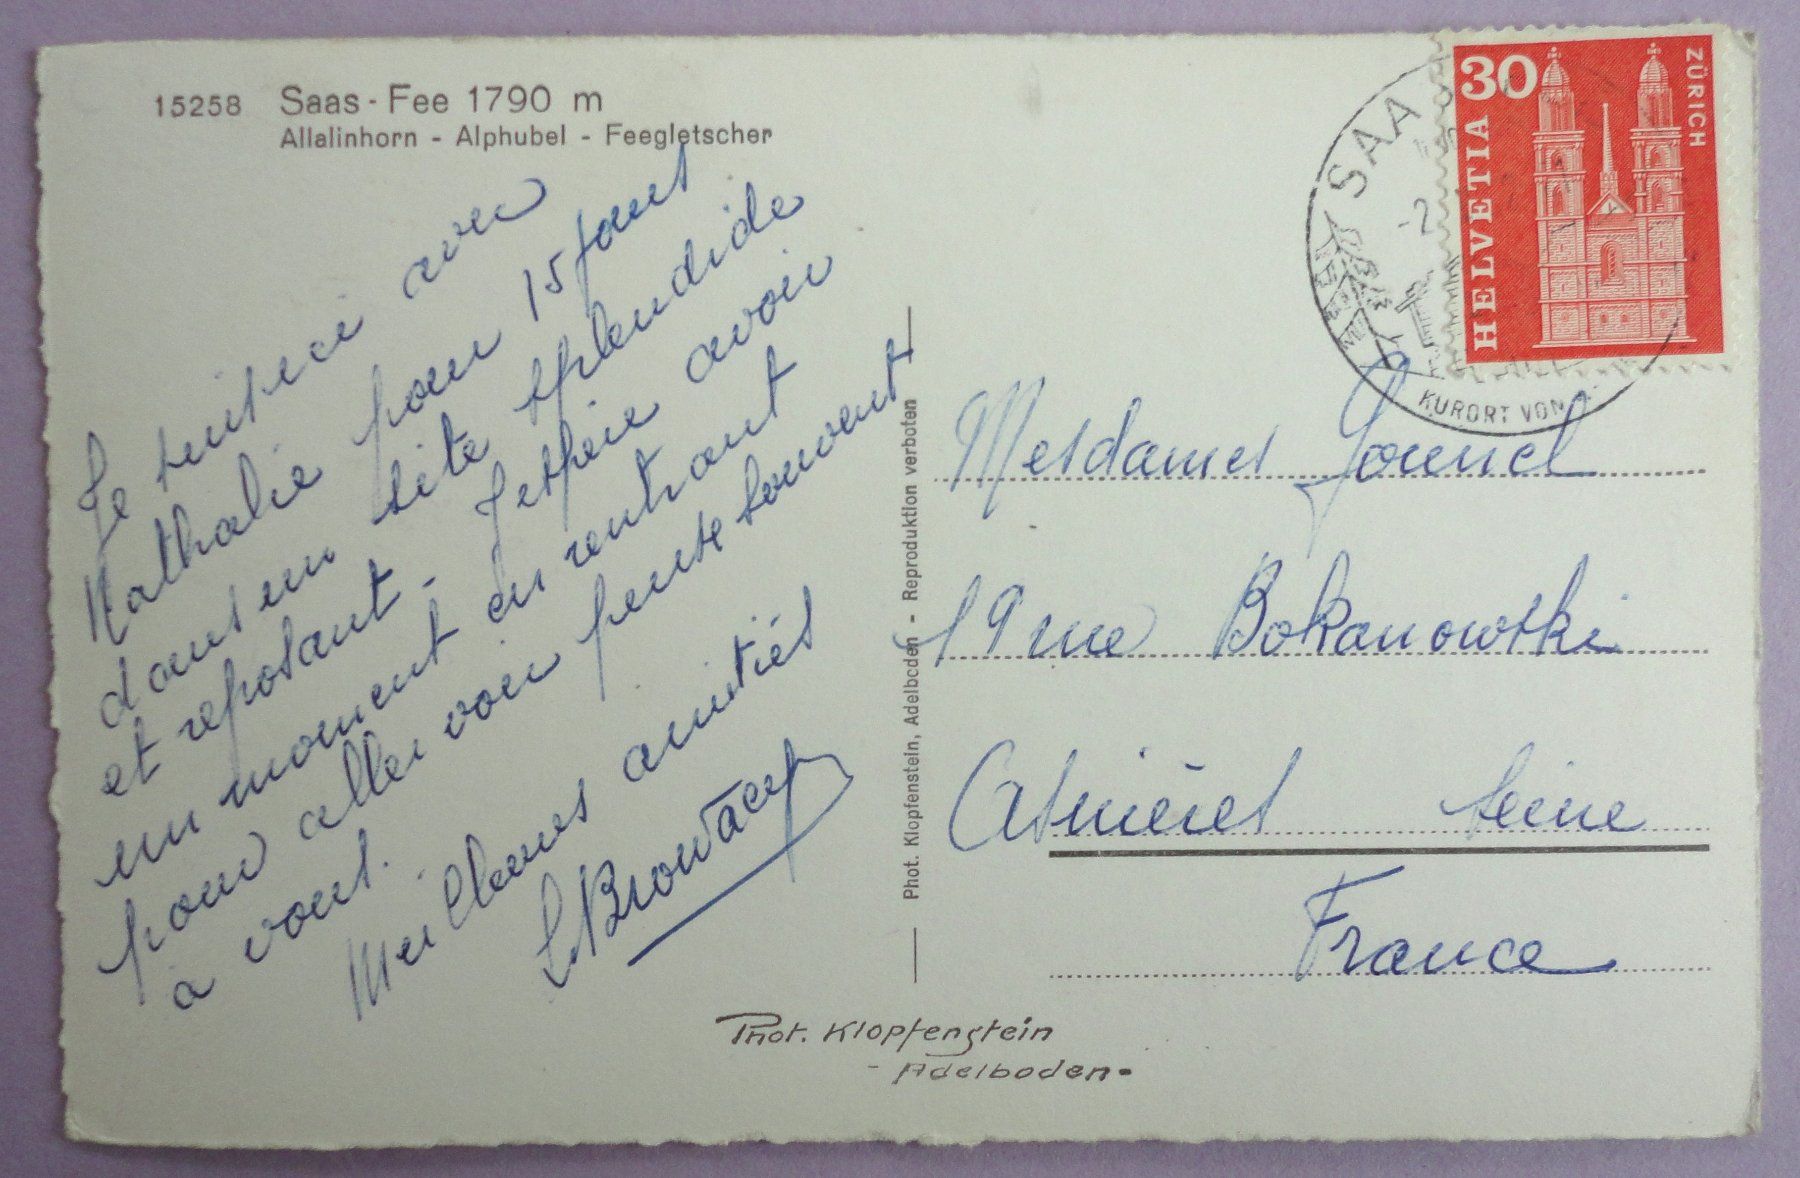 15258 Saas-Fee 1790 m
Allalinhorn - Alphubel - Feegletscher
Je suis ici avec
Nathalie pour 15 jours
dans un site splendide
et reposant - J'espère avoir
un moment en rentrant
pour aller voir pense souvent
à vous.
Meilleures amitiés
Phot. Klopfenstein, Adelboden - Reproduktion verboten
HELVETIA
30
ZÜRICH
SAA
-2
KURORT VON
Mesdames
19 rue Bokanowski
Asnières Seine
France
Phot. Klopfenstein
- Adelboden -